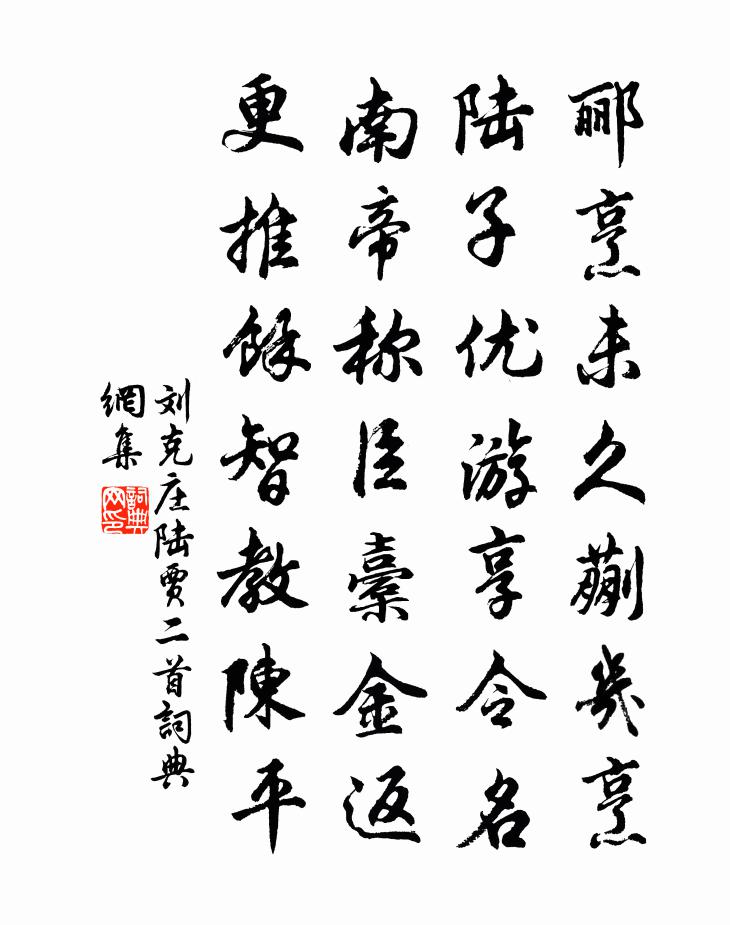 郦烹未久蒯㡬烹
陆子优游享令名
南帝称臣橐金返
更推馀智教陳平
刘克庄陆贾二首詞典
網集
詞典网印